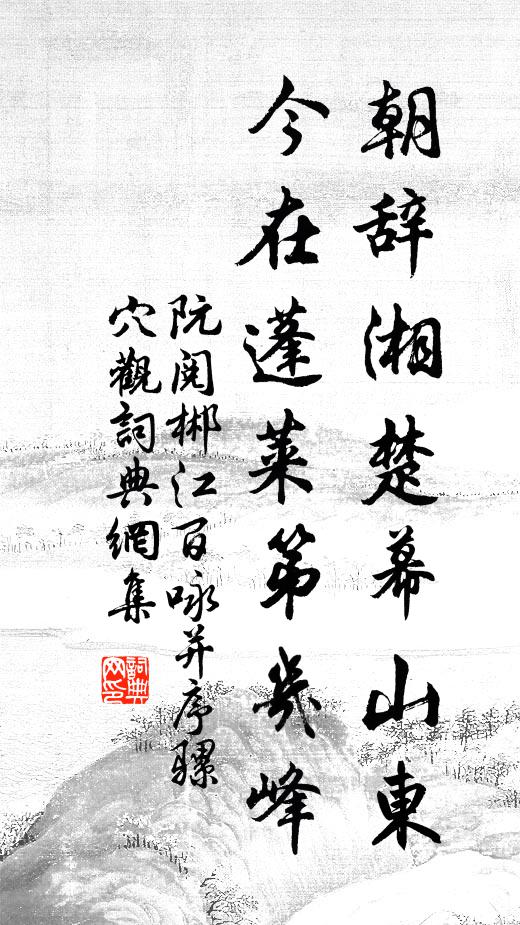 朝辞湘楚幕山東
今在蓬萊第幾峰
阮閱郴江百咏并序騾
穴觀詞典網集
詞典網印